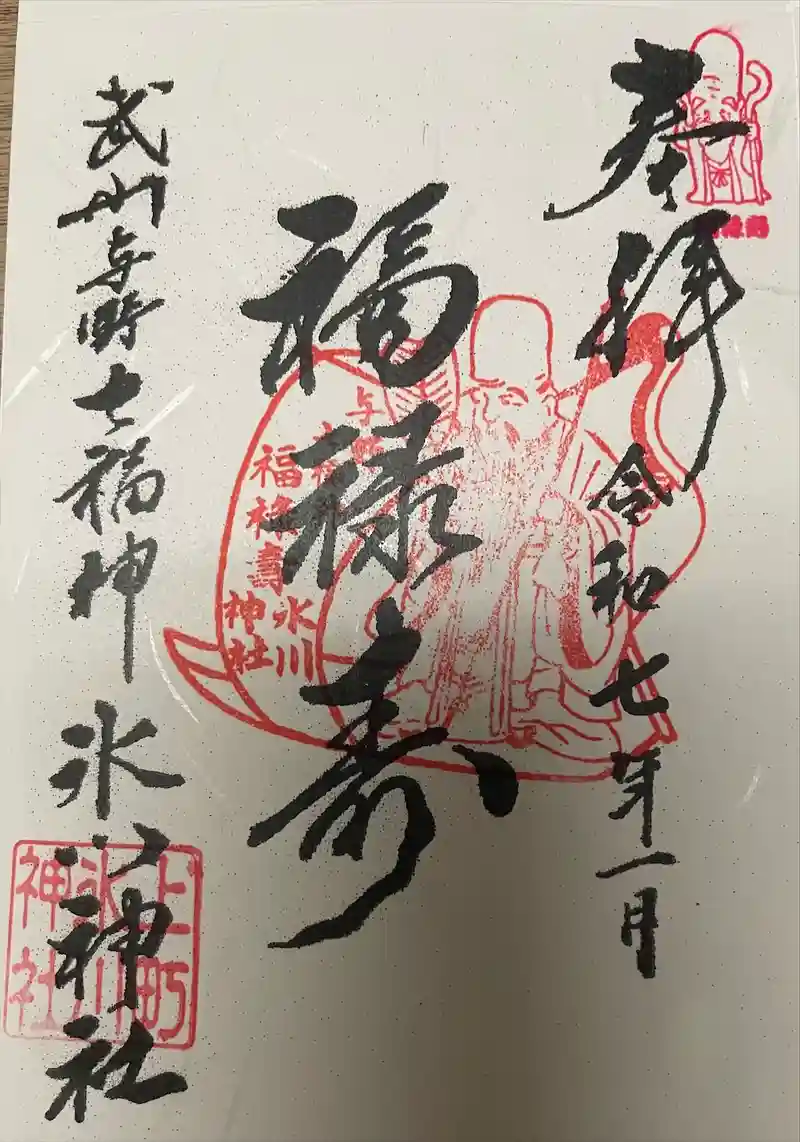 奉拝
令和七年一月
福禄寿
武州与野七福神
氷川神社
与野
福禄壽
氷川
神社
上町
氷川
神社